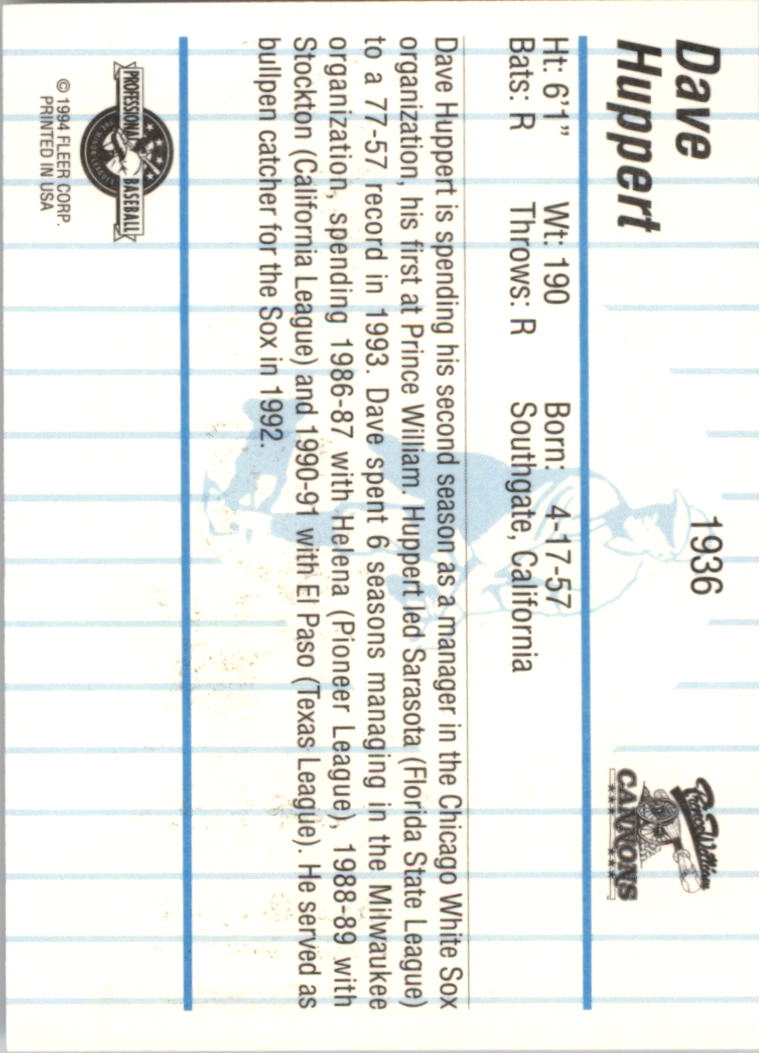 Dave
Huppert
1936
Prince William
CANNONS
Ht: 6'1" Wt: 190 Born: 4-17-57
Bats: R Throws: R Southgate, California
Dave Huppert is spending his second season as a manager in the Chicago White Sox
organization, his first at Prince William. Huppert led Sarasota (Florida State League)
to a 77-57 record in 1993. Dave spent 6 seasons managing in the Milwaukee
organization, spending 1986-87 with Helena (Pioneer League), 1988-89 with
Stockton (California League) and 1990-91 with El Paso (Texas League). He served as
bullpen catcher for the Sox in 1992.
PROFESSIONAL BASEBALL
© 1994 FLEER CORP.
PRINTED IN USA